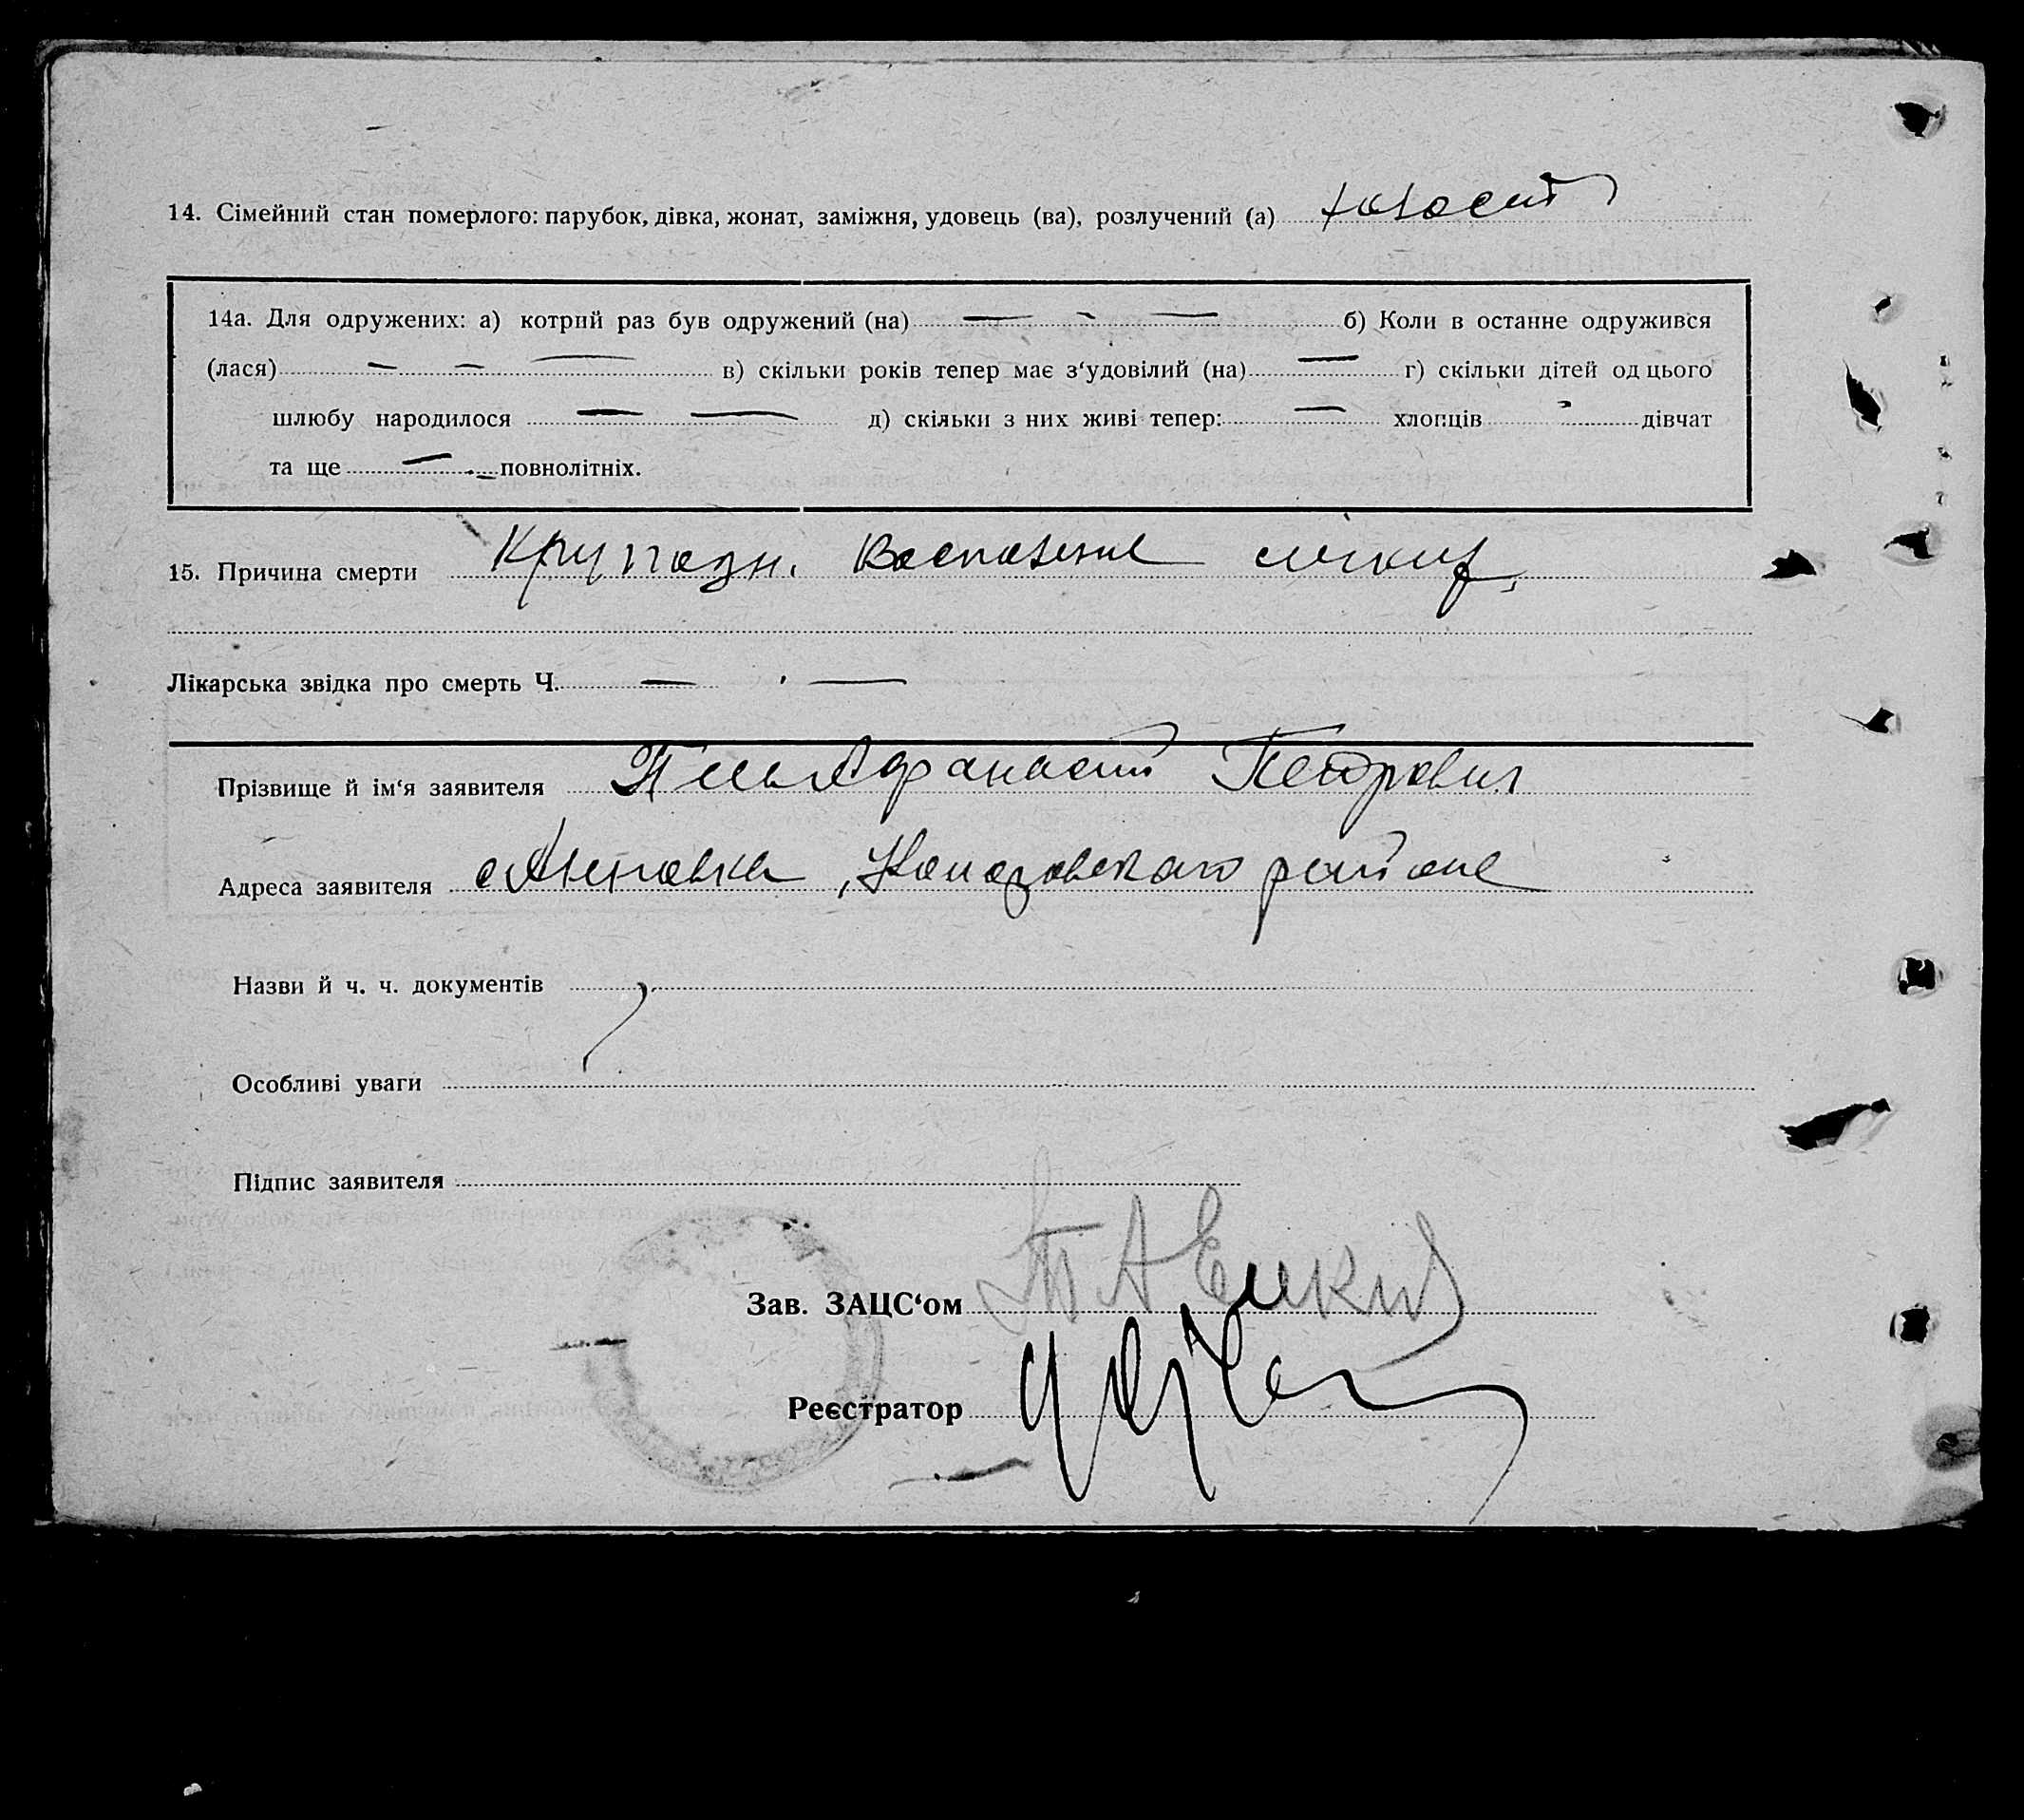 14. Сімейний стан померлого: парубок, дівка, жонат, заміжня, удовець (ва), розлучений (а) холостий
14а. Для одружених: а) котрий раз був одружений (на) — - — б) Коли в останнє одружився
(лася) — - — в) скільки років тепер має з‘удовілий (на) — г) скільки дітей од цього
шлюбу народилося — — д) скільки з них живі тепер: — хлопців - дівчат
та ще — повнолітніх.
15. Причина смерти Крупозн. Воспаление
Лікарська звідка про смерть Ч. — —
Прізвище й ім‘я заявителя Афанасий Петрович
Адреса заявителя Анновка, района
Назви й ч. ч. документів
Особливі уваги
Підпис заявителя
Зав. ЗАЦС‘ом
Реєстратор